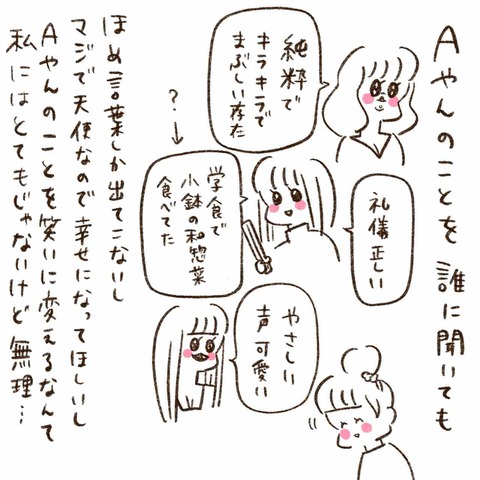 Aやんのことを誰に聞いても
純粋で
キラキラで
まぶしい存在
礼儀正しい
?
学食で
小鉢の和惣菜
食べてた
やさしい
声可愛い
ほめ言葉しか出てこないし
マジで天使なので幸せになってほしいし
Aやんのことを笑いに変えるなんて
私にはとてもじゃないけど無理…